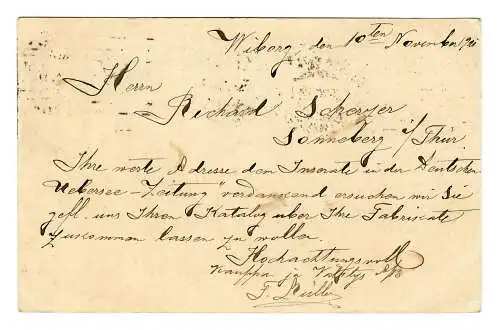 Wiborg, den 10ten November 1901
Herrn
Richard Scherzer
Sonneberg i/Thür.
Ihre werte Adresse dem Inserate in der „Deutschen
Uebersee-Zeitung" verdankend ersuchen wir Sie
gefl. uns Ihren Katalog über Ihre Fabricate
zukommen lassen zu wollen.
Hochachtungsvoll
Kauppa ja
F.